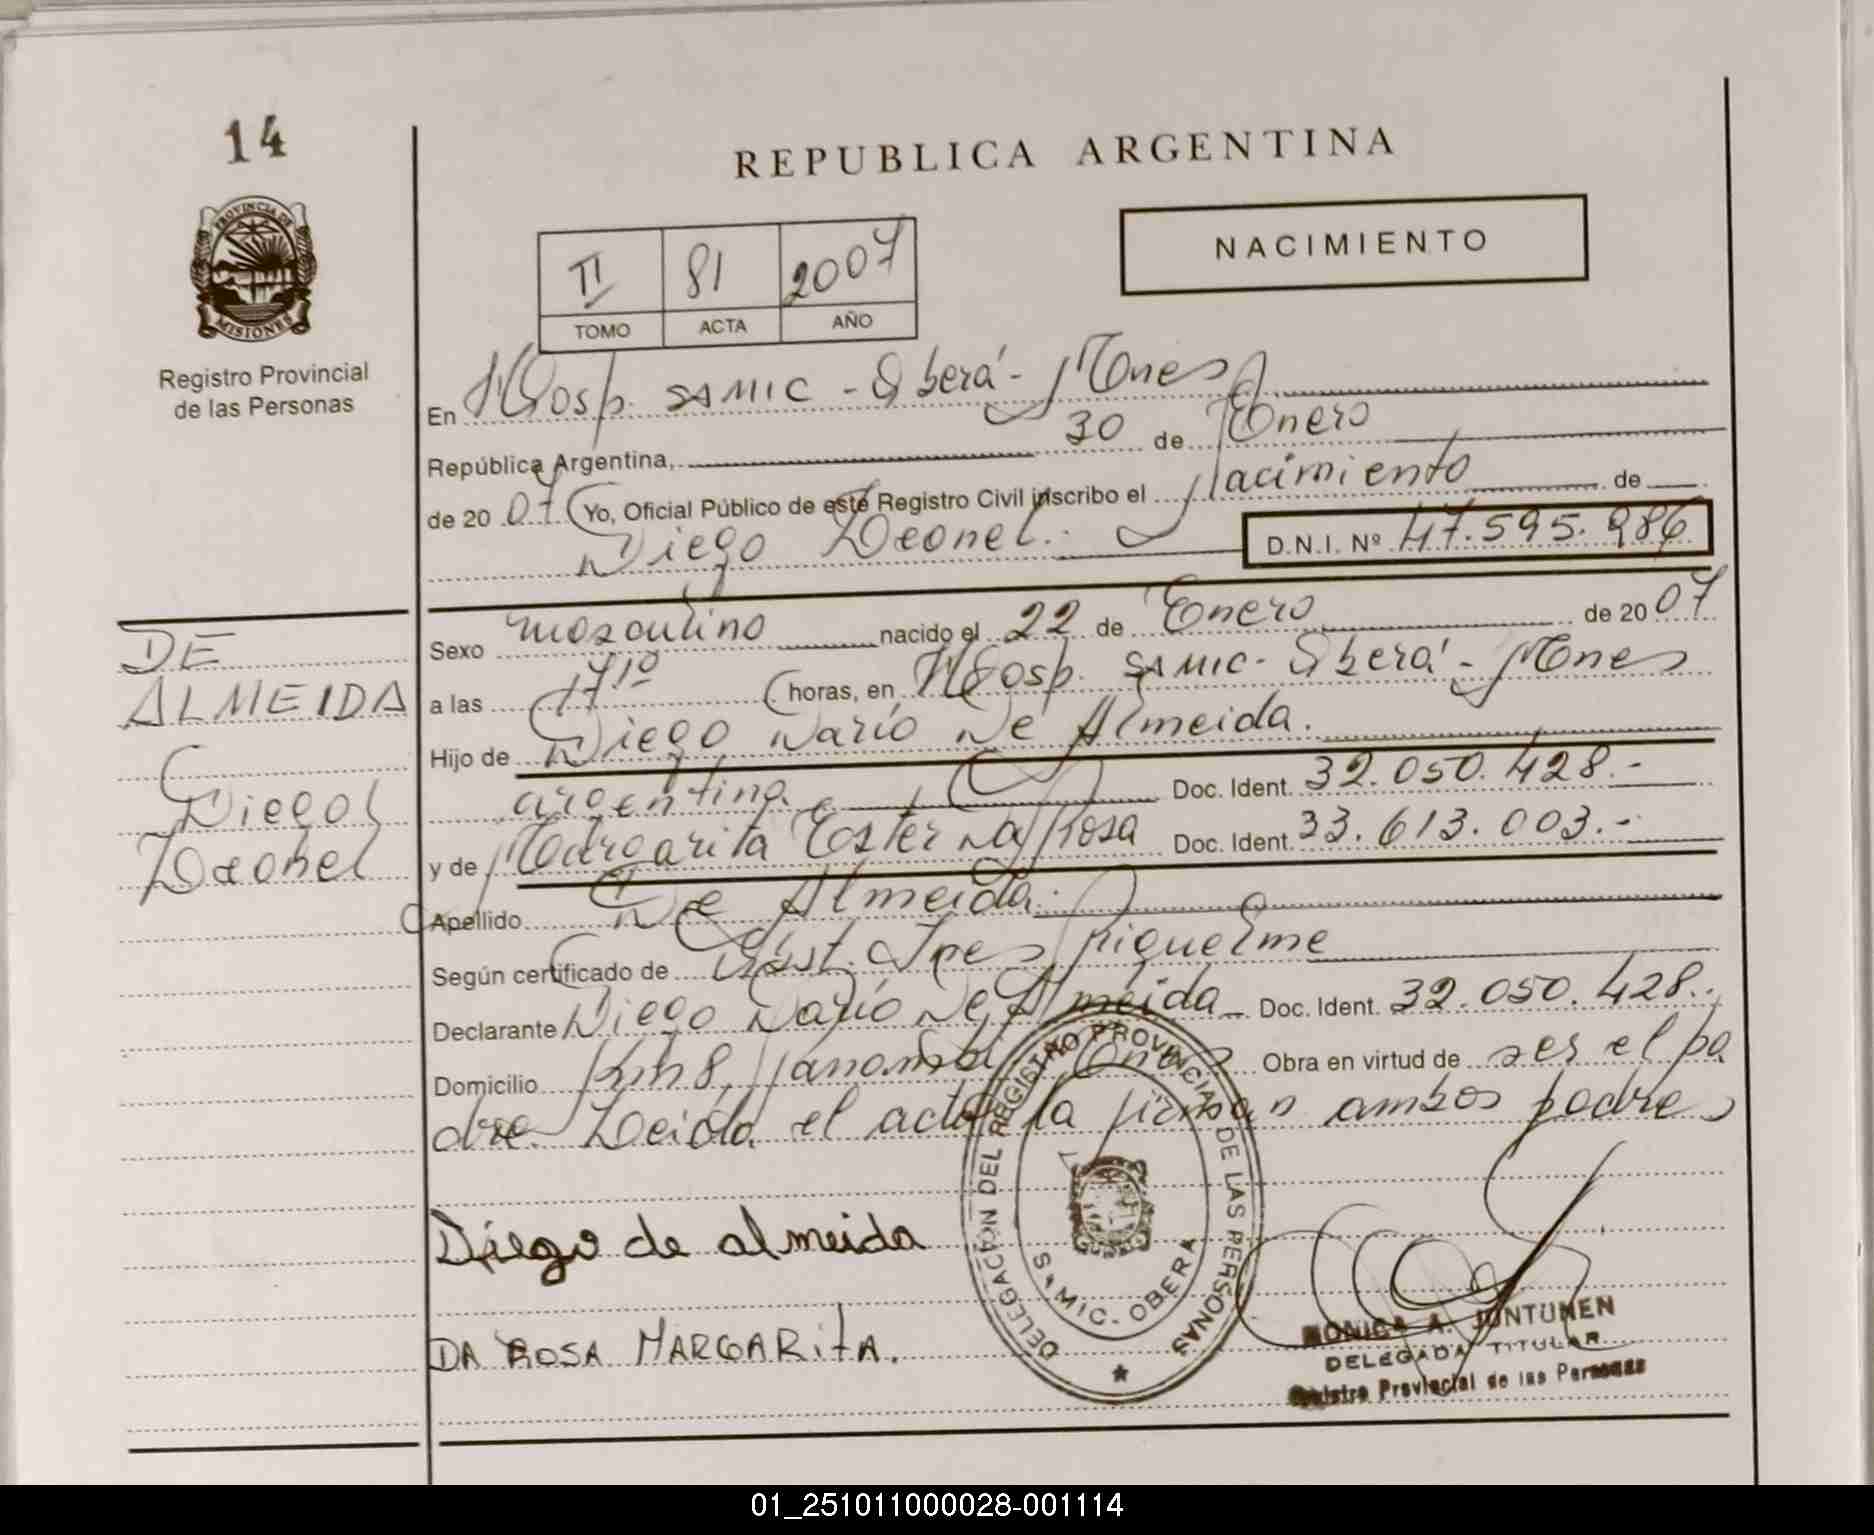 14
REPUBLICA ARGENTINA
PROVINCIA DE
MISIONES
Registro Provincial
de las Personas
NACIMIENTO
II 81 2007
TOMO ACTA AÑO
En Hosp. SAMIC - Oberá - Mnes
República Argentina, 30 de Enero
de 2007 Yo, Oficial Público de este Registro Civil inscribo el Nacimiento de
Diego Leonel. D.N.I. Nº 47.595.986
DE
ALMEIDA
Diego
Leonel
Sexo masculino nacido el 22 de Enero de 2007
a las 17 10 horas, en Hosp. SAMIC - Oberá - Mnes
Hijo de Diego Darío De Almeida.
argentina Doc. Ident. 32.050.428.-
y de Margarita Ester Da Rosa Doc. Ident. 33.613.003.-
Apellido De Almeida.
Según certificado de Obst. Ines Riquelme
Declarante Diego Darío De Almeida Doc. Ident. 32.050.428.-
Domicilio Km 8, Panambí Mnes Obra en virtud de ser el pa
dre. Leída el acta la firman ambos padres
Diego de almeida
DA ROSA MARGARITA.
DELEGACIÓN DEL REGISTRO PROVINCIAL DE LAS PERSONAS
SAMIC - OBERA
MONICA A. JUNTUNEN
DELEGADA TITULAR
Registro Provincial de las Personas
01_251011000028-001114